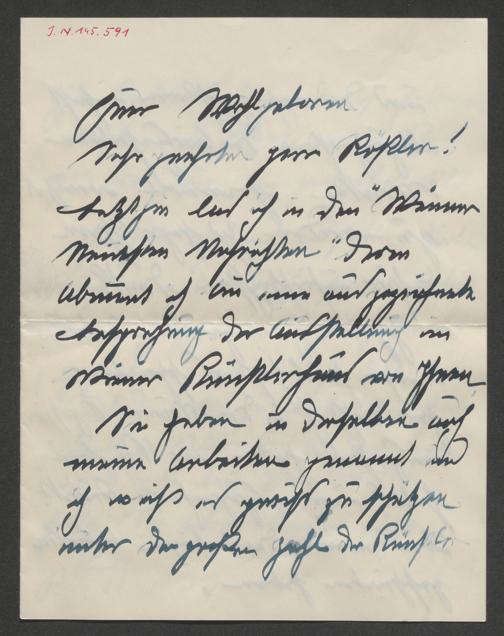 J.N. 145.591
Euer Wohlgeboren
Sehr geehrter Herr Rößler!
Letzthin las ich in den "Wiener
Neuesten Nachrichten" deren
Abonnent ich bin eine ausgezeichnete
Besprechung der Ausstellung im
Wiener Künstlerhaus von Ihnen
Sie haben in derselben auch
meine Arbeiten genannt und
ich weiß es gewiß zu schätzen
unter der großen Zahl der Künstler